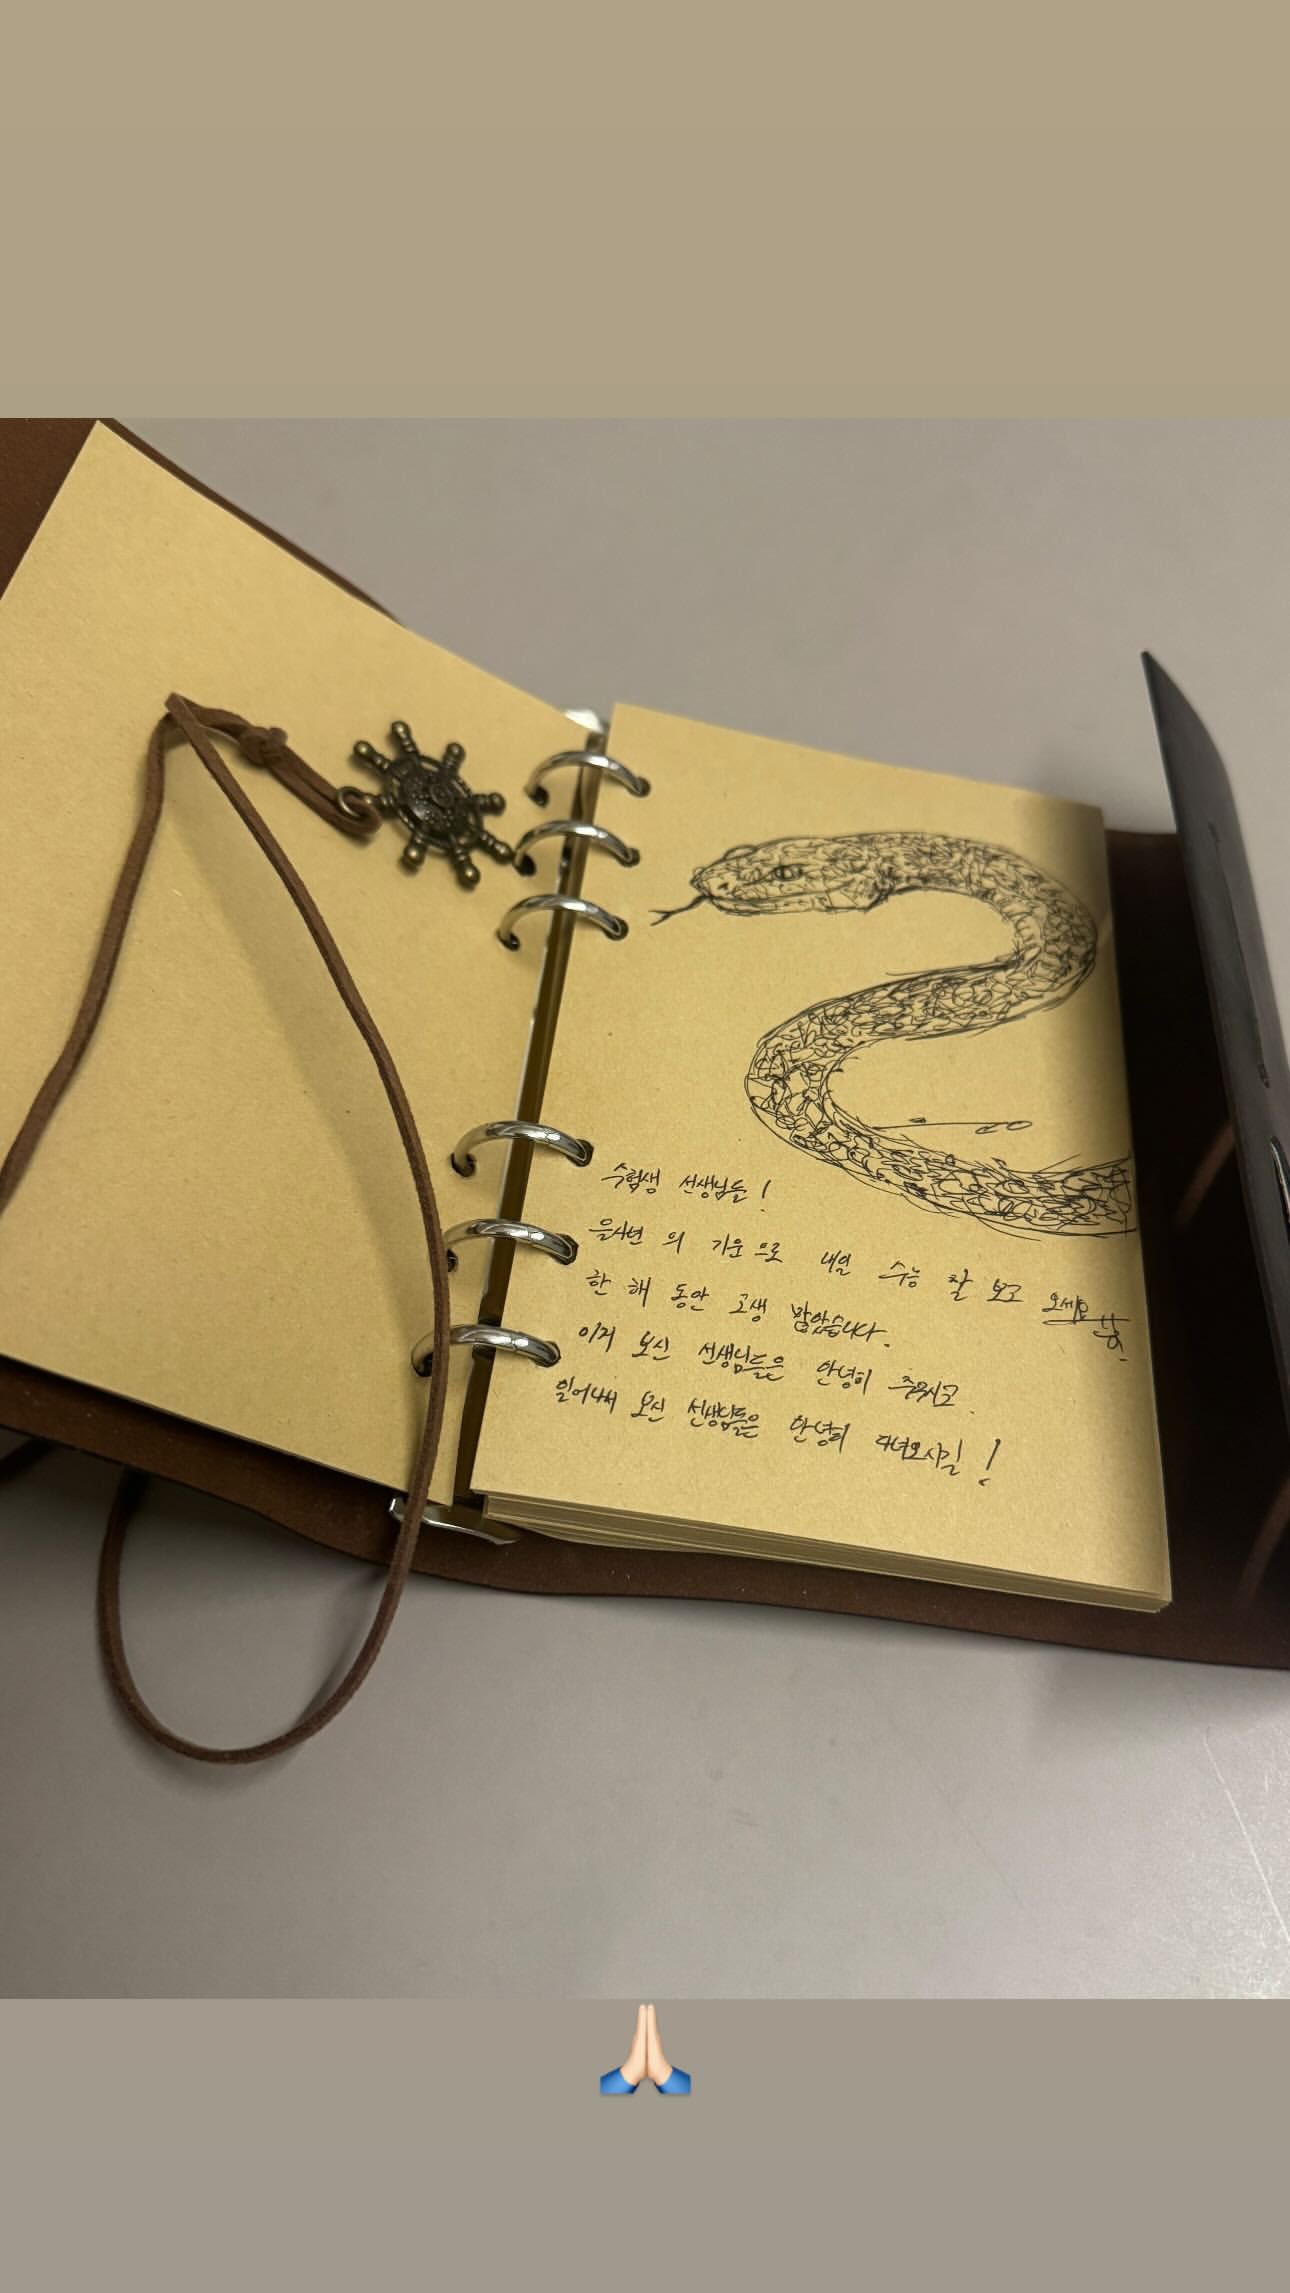 수험생 선생님들!
을사년의 기운으로 내일 수능 잘 보고 오세요
한 해 동안 고생 많았습니다.
이거 보신 선생님들은 안녕히 주무시고
일어나서 보신 선생님들은 안녕히 다녀오시길!